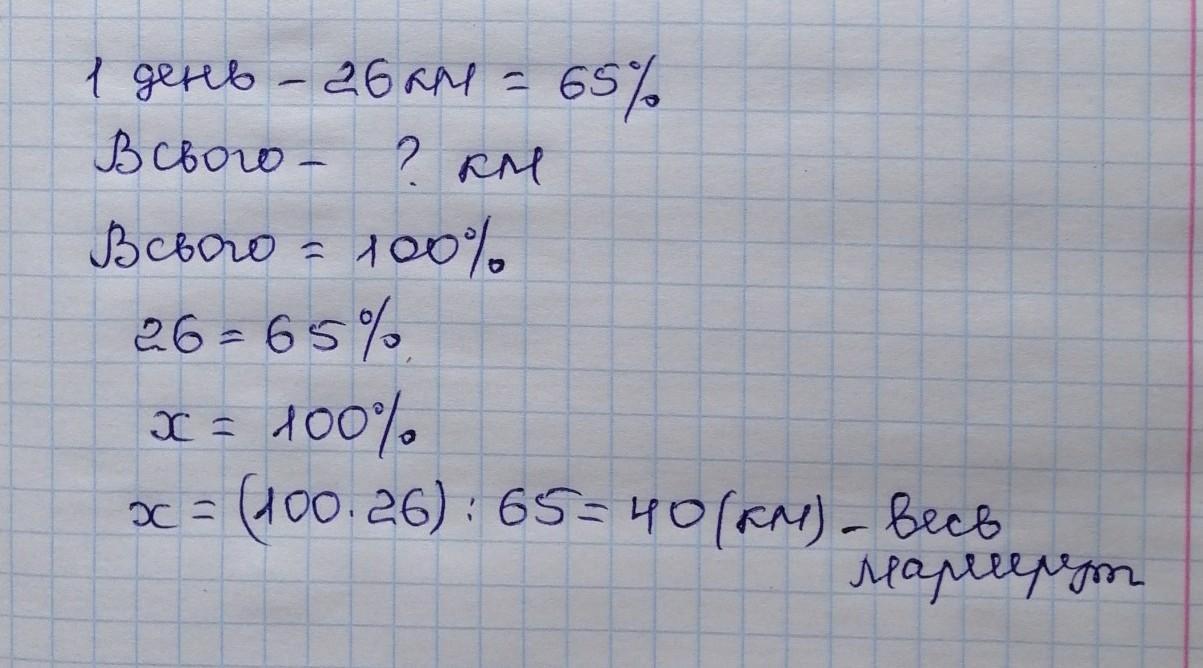 1 день - 26 км = 65%
Всього - ? км
Всього = 100%
26 = 65%
x = 100%
x = (100 · 26) : 65 = 40 (км) - весь
маршрут